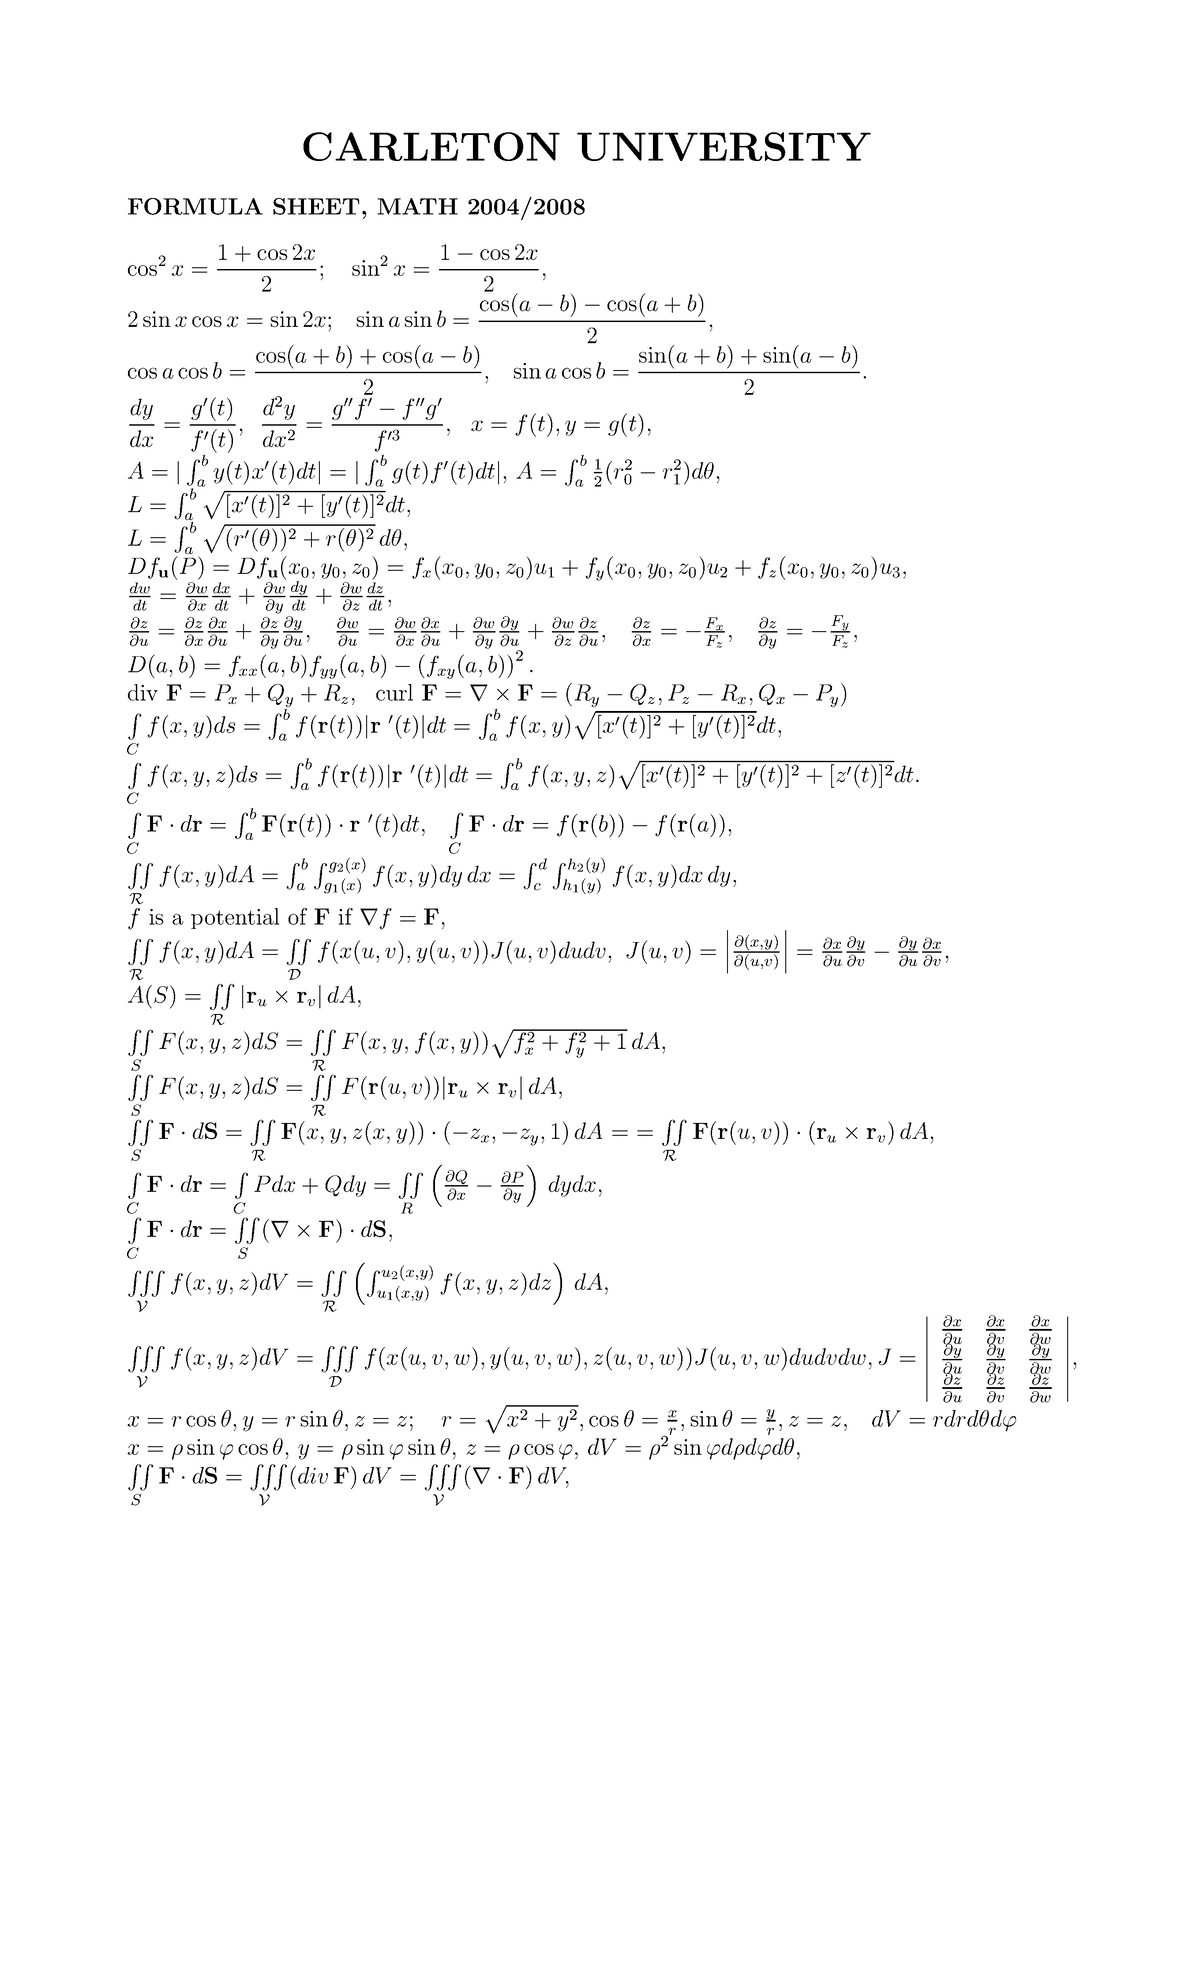 CARLETON UNIVERSITY
FORMULA SHEET, MATH 2004/2008
$\cos^2 x = \dfrac{1+\cos 2x}{2}; \quad \sin^2 x = \dfrac{1-\cos 2x}{2},$
$2\sin x\cos x = \sin 2x; \quad \sin a\sin b = \dfrac{\cos(a-b)-\cos(a+b)}{2},$
$\cos a\cos b = \dfrac{\cos(a+b)+\cos(a-b)}{2}, \quad \sin a\cos b = \dfrac{\sin(a+b)+\sin(a-b)}{2}.$
$\dfrac{dy}{dx} = \dfrac{g'(t)}{f'(t)}, \quad \dfrac{d^2y}{dx^2} = \dfrac{g''f'-f''g'}{f'^3}, \quad x = f(t), y = g(t),$
$A = |\int_a^b y(t)x'(t)dt| = |\int_a^b g(t)f'(t)dt|, \ A = \int_a^b \frac{1}{2}(r_0^2 - r_1^2)d\theta,$
$L = \int_a^b \sqrt{[x'(t)]^2+[y'(t)]^2}dt,$
$L = \int_a^b \sqrt{(r'(\theta))^2+r(\theta)^2}\,d\theta,$
$Df_{\mathbf{u}}(P) = Df_{\mathbf{u}}(x_0,y_0,z_0) = f_x(x_0,y_0,z_0)u_1 + f_y(x_0,y_0,z_0)u_2 + f_z(x_0,y_0,z_0)u_3,$
$\frac{dw}{dt} = \frac{\partial w}{\partial x}\frac{dx}{dt} + \frac{\partial w}{\partial y}\frac{dy}{dt} + \frac{\partial w}{\partial z}\frac{dz}{dt},$
$\frac{\partial z}{\partial u} = \frac{\partial z}{\partial x}\frac{\partial x}{\partial u} + \frac{\partial z}{\partial y}\frac{\partial y}{\partial u}, \quad \frac{\partial w}{\partial u} = \frac{\partial w}{\partial x}\frac{\partial x}{\partial u} + \frac{\partial w}{\partial y}\frac{\partial y}{\partial u} + \frac{\partial w}{\partial z}\frac{\partial z}{\partial u}, \quad \frac{\partial z}{\partial x} = -\frac{F_x}{F_z}, \quad \frac{\partial z}{\partial y} = -\frac{F_y}{F_z},$
$D(a,b) = f_{xx}(a,b)f_{yy}(a,b) - (f_{xy}(a,b))^2.$
div $\mathbf{F} = P_x + Q_y + R_z,$ curl $\mathbf{F} = \nabla\times\mathbf{F} = (R_y - Q_z, P_z - R_x, Q_x - P_y)$
$\int\limits_C f(x,y)ds = \int_a^b f(\mathbf{r}(t))|\mathbf{r}\,'(t)|dt = \int_a^b f(x,y)\sqrt{[x'(t)]^2+[y'(t)]^2}dt,$
$\int\limits_C f(x,y,z)ds = \int_a^b f(\mathbf{r}(t))|\mathbf{r}\,'(t)|dt = \int_a^b f(x,y,z)\sqrt{[x'(t)]^2+[y'(t)]^2+[z'(t)]^2}dt.$
$\int\limits_C \mathbf{F}\cdot d\mathbf{r} = \int_a^b \mathbf{F}(\mathbf{r}(t))\cdot\mathbf{r}\,'(t)dt, \quad \int\limits_C \mathbf{F}\cdot d\mathbf{r} = f(\mathbf{r}(b)) - f(\mathbf{r}(a)),$
$\iint\limits_{\mathcal{R}} f(x,y)dA = \int_a^b\int_{g_1(x)}^{g_2(x)} f(x,y)dy\,dx = \int_c^d\int_{h_1(y)}^{h_2(y)} f(x,y)dx\,dy,$
$f$ is a potential of $\mathbf{F}$ if $\nabla f = \mathbf{F},$
$\iint\limits_{\mathcal{R}} f(x,y)dA = \iint\limits_{\mathcal{D}} f(x(u,v),y(u,v))J(u,v)dudv, \ J(u,v) = \left|\frac{\partial(x,y)}{\partial(u,v)}\right| = \frac{\partial x}{\partial u}\frac{\partial y}{\partial v} - \frac{\partial y}{\partial u}\frac{\partial x}{\partial v},$
$A(S) = \iint\limits_{\mathcal{R}} |\mathbf{r}_u\times\mathbf{r}_v|\,dA,$
$\iint\limits_S F(x,y,z)dS = \iint\limits_{\mathcal{R}} F(x,y,f(x,y))\sqrt{f_x^2+f_y^2+1}\,dA,$
$\iint\limits_S F(x,y,z)dS = \iint\limits_{\mathcal{R}} F(\mathbf{r}(u,v))|\mathbf{r}_u\times\mathbf{r}_v|\,dA,$
$\iint\limits_S \mathbf{F}\cdot d\mathbf{S} = \iint\limits_{\mathcal{R}} \mathbf{F}(x,y,z(x,y))\cdot(-z_x,-z_y,1)\,dA = = \iint\limits_{\mathcal{R}} \mathbf{F}(\mathbf{r}(u,v))\cdot(\mathbf{r}_u\times\mathbf{r}_v)\,dA,$
$\int\limits_C \mathbf{F}\cdot d\mathbf{r} = \int\limits_C Pdx + Qdy = \iint\limits_R \left(\frac{\partial Q}{\partial x} - \frac{\partial P}{\partial y}\right) dydx,$
$\int\limits_C \mathbf{F}\cdot d\mathbf{r} = \iint\limits_S (\nabla\times\mathbf{F})\cdot d\mathbf{S},$
$\iiint\limits_{\mathcal{V}} f(x,y,z)dV = \iint\limits_{\mathcal{R}} \left(\int_{u_1(x,y)}^{u_2(x,y)} f(x,y,z)dz\right) dA,$
$\iiint\limits_{\mathcal{V}} f(x,y,z)dV = \iiint\limits_{\mathcal{D}} f(x(u,v,w),y(u,v,w),z(u,v,w))J(u,v,w)dudvdw, J = \begin{vmatrix} \frac{\partial x}{\partial u} & \frac{\partial x}{\partial v} & \frac{\partial x}{\partial w} \\ \frac{\partial y}{\partial u} & \frac{\partial y}{\partial v} & \frac{\partial y}{\partial w} \\ \frac{\partial z}{\partial u} & \frac{\partial z}{\partial v} & \frac{\partial z}{\partial w} \end{vmatrix},$
$x = r\cos\theta, y = r\sin\theta, z = z; \quad r = \sqrt{x^2+y^2}, \cos\theta = \frac{x}{r}, \sin\theta = \frac{y}{r}, z = z, \quad dV = rdrd\theta d\varphi$
$x = \rho\sin\varphi\cos\theta, \ y = \rho\sin\varphi\sin\theta, \ z = \rho\cos\varphi, \ dV = \rho^2\sin\varphi d\rho d\varphi d\theta,$
$\iint\limits_S \mathbf{F}\cdot d\mathbf{S} = \iiint\limits_{\mathcal{V}} (div\,\mathbf{F})\,dV = \iiint\limits_{\mathcal{V}} (\nabla\cdot\mathbf{F})\,dV,$